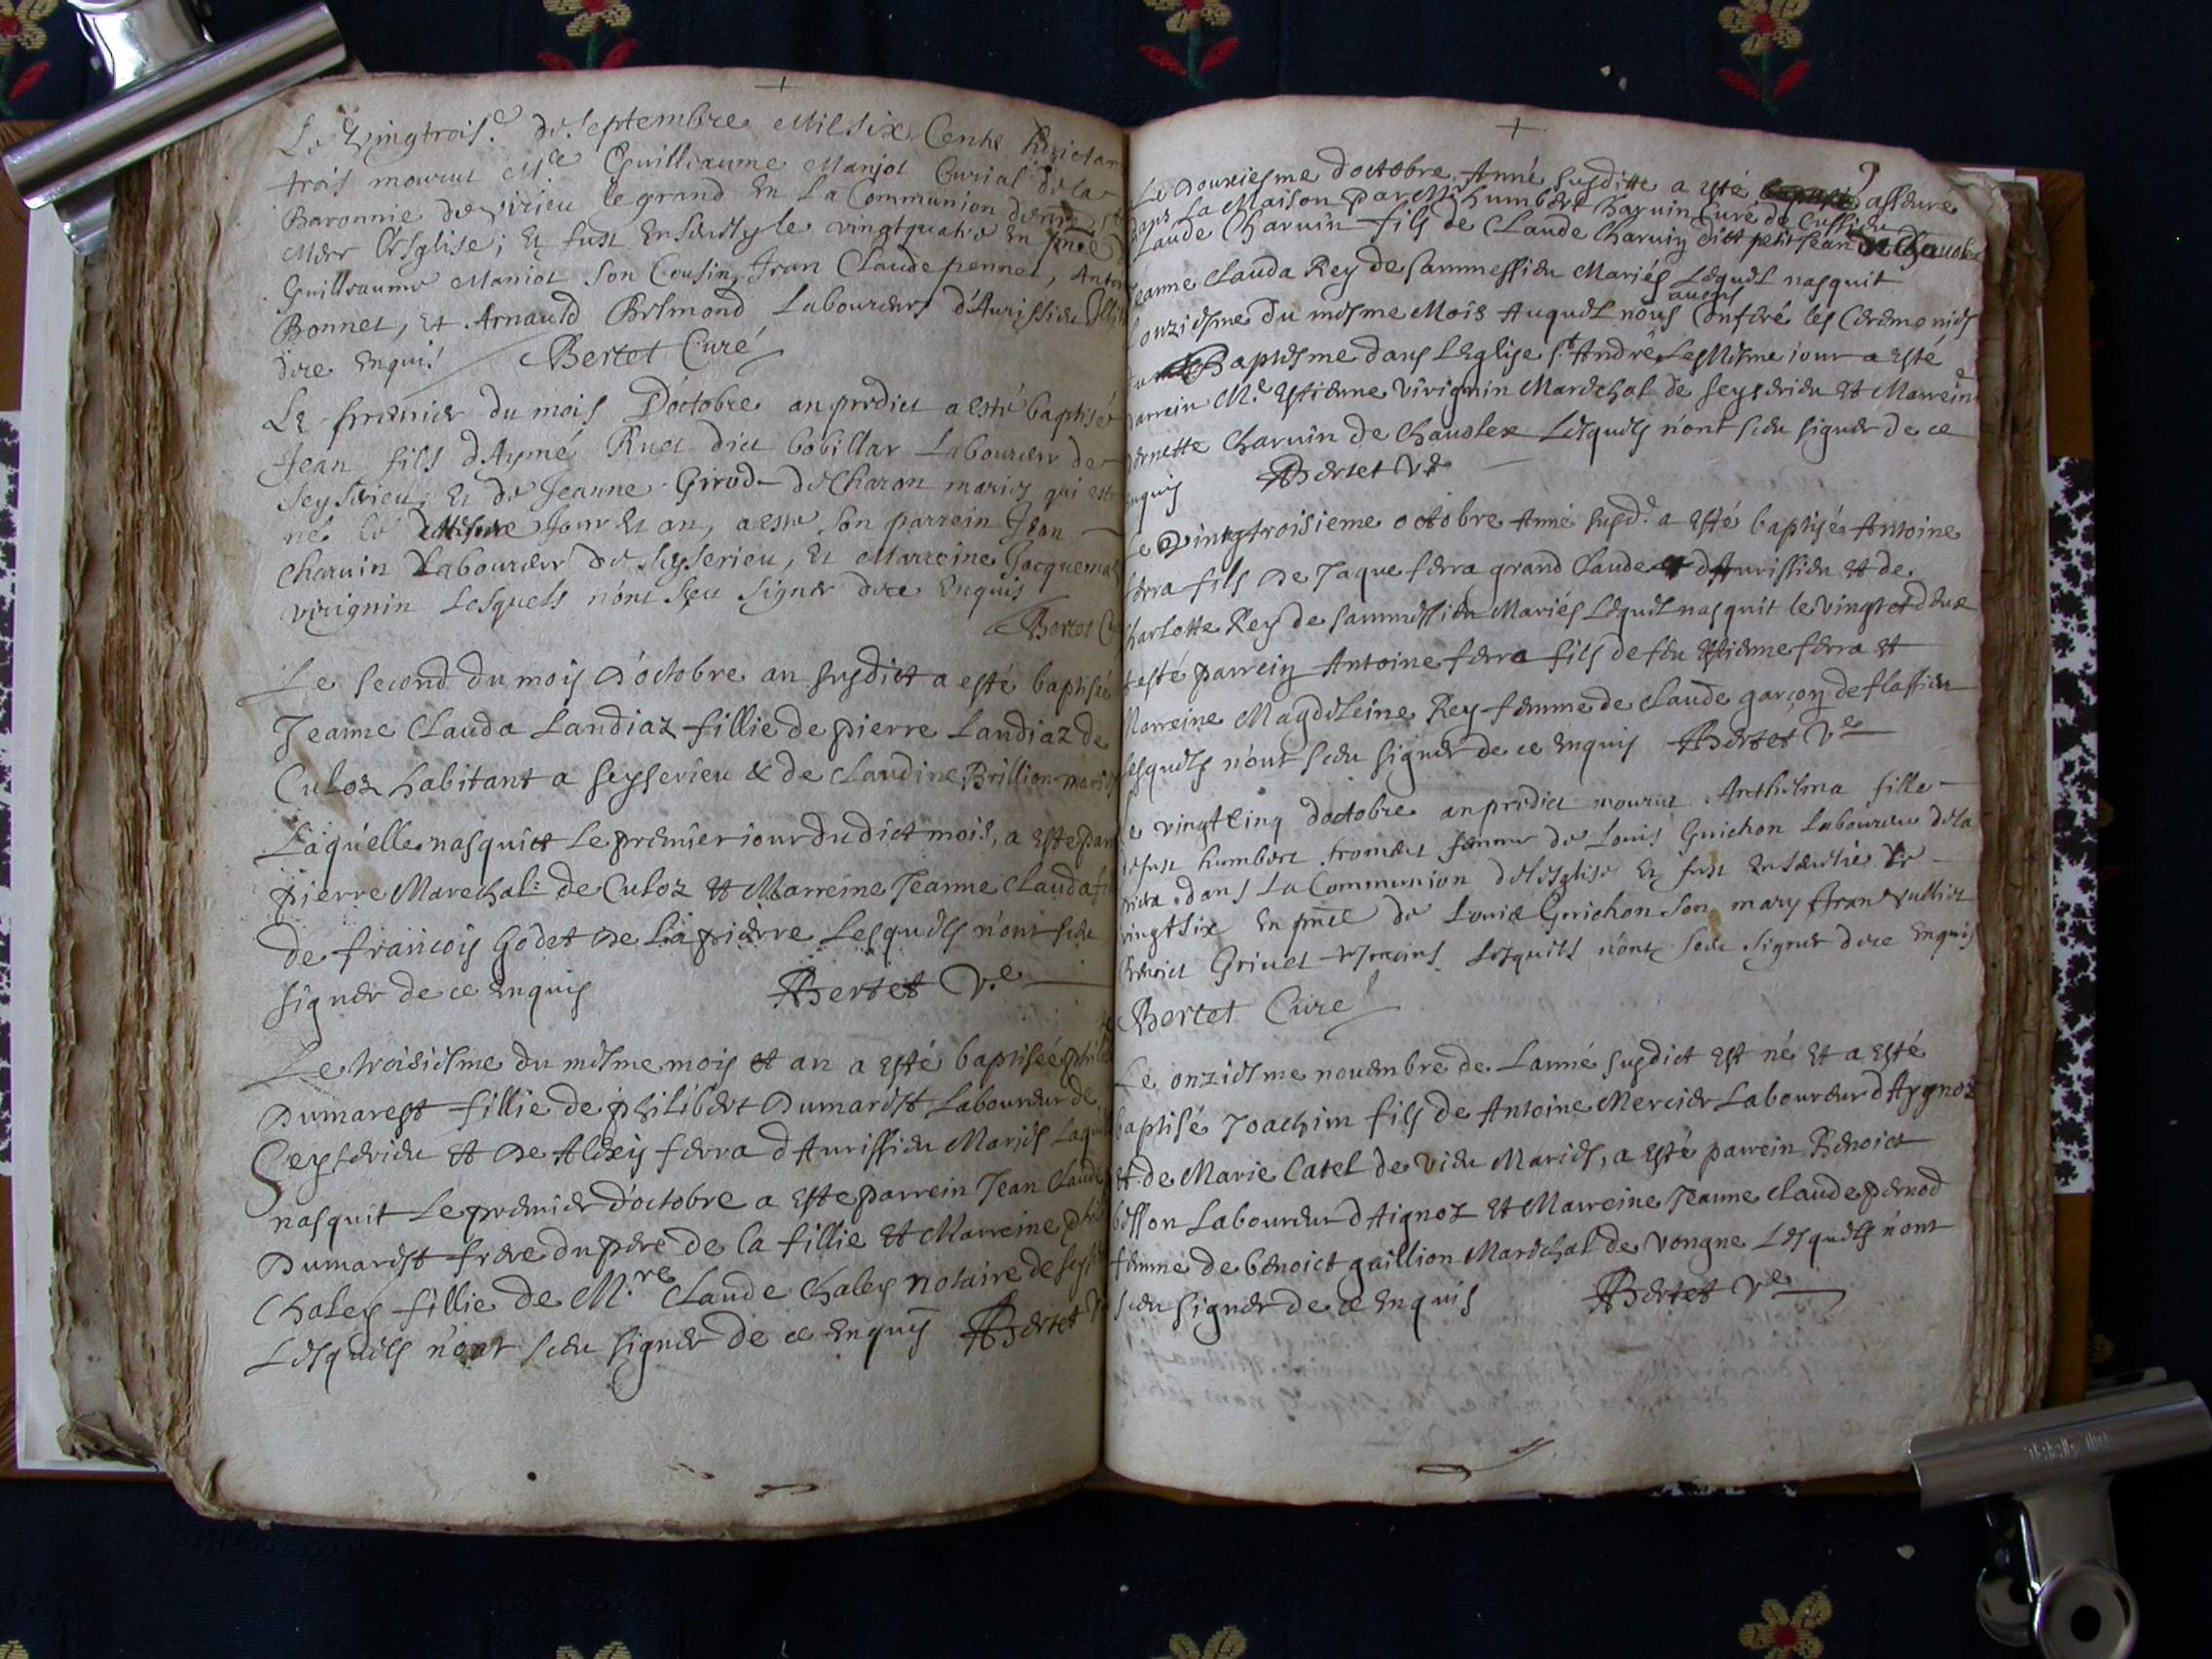 Le vingtrois.e de septembre Mil six Cents
trois mourut M.e Guilleaume Manjot Curial de la
Baronnie de virieu le grand En La Communion de nre
Mere l'Esglise; Et fust Enseuely le vingtquatre En pnce
Guilleaume Maniot son Cousin, Jean Claude pennet,
Bonnet, Et Arnauld Belmond Laboureurs d'Aurissieu
de ce Enquis Bertet Curé
Le premier du mois D'octobre an predict a esté baptisé
Jean fils d'Aymé Ruet dict bobillar Laboureur de
Seyserieu; Et de Jeanne Girod de Charon mariez qui est
né le Jour Et an, a esté son parrein Jean
Charuin Laboureur de Seyserieu, Et Marreine Jacquema
virignin Lesquels n'ont sceu signer de ce Enquis
Bertet
Le second du mois d'octobre an susdict a esté baptisée
Jeanne Clauda Landiaz fillie de pierre Landiaz de
Culoz habitant a seyserieu & de Claudine Brillion mariés
Laquelle nasquit Le premier iour du dict mois, a esté par
pierre Marechal: de Culoz et Marreine Jeanne Clauda
de francois Godet de La pierre Lesquels n'ont sceu
signer de ce Enquis Bertet V.e
Le troisiesme du mesme mois et an a esté baptisée
Dumarest fillie de philibert Dumarest Laboureur de
Seyserieu et de Alexy ferra d'Aurissieu Mariés
nasquit Le premier d'octobre a esté parrein Jean Claude
Dumarest frere du pere de la fillie et Marreine
Chaley fillie de M.re Claude Chaley notaire de
Lesquels n'ont sceu signer de ce enquis Bertet V
Le Douziesme d'octobre Anné susditte a esté asseuré
dans La Maison par M.re humbert Charuin Curé de Cussieu
Claude Charuin fils de Claude Charuin ditt petit Jean
Jeanne Clauda Rey de sammessieu Mariés Lequel nasquit
L'onziesme du mesme Mois Auquel nous auons Conferé les Ceremonies
du Baptesme dans L'Eglise s.t André Le Mesme iour a esté
parrein M.e Estienne Virignin Marechal de seyserieu et Marreine
pernette Charuin de Chauolex Lesquels n'ont sceu signer de ce
enquis Bertet V.e
Le Vingtroisieme octobre Anné susd.e a esté baptisé Antoine
ferra fils de Jaque ferra grand Claude d'Aurissieu et de
Charlotte Rey de sammessieu Mariés Lequel nasquit le vingt et deux
a esté parrein Antoine ferra fils de feu Estienne ferra et
Marreine Magdeleine Rey femme de Claude garçon de flassieu
Lesquels n'ont sceu signer de ce enquis Bertet V.e
Le vingt cinq d'octobre an predict mourut Anthelma fille
defunt humbert fromen femme de Louis Guichon Laboureur de la
dans La Communion de l'esglise Et fust Enseuelie Le
vingt six En pnce de Louis Guichon son mary Jean
Benoict Griuet Lesquels n'ont sceu signer de ce Enquis
Bertet Curé
Le onziesme nouembre de L'anné susdict est né et a esté
baptisé Joachim fils de Antoine Mercier Laboureur d'Aygnoz
et de Marie Catel de vieu Mariés, a esté parrein Benoict
besson Laboureur d'Aignoz et Marreine Jeanne Claude pernod
femme de benoict gaillion Marechal de vongne Lesquels n'ont
sceu signer de ce enquis Bertet V.e